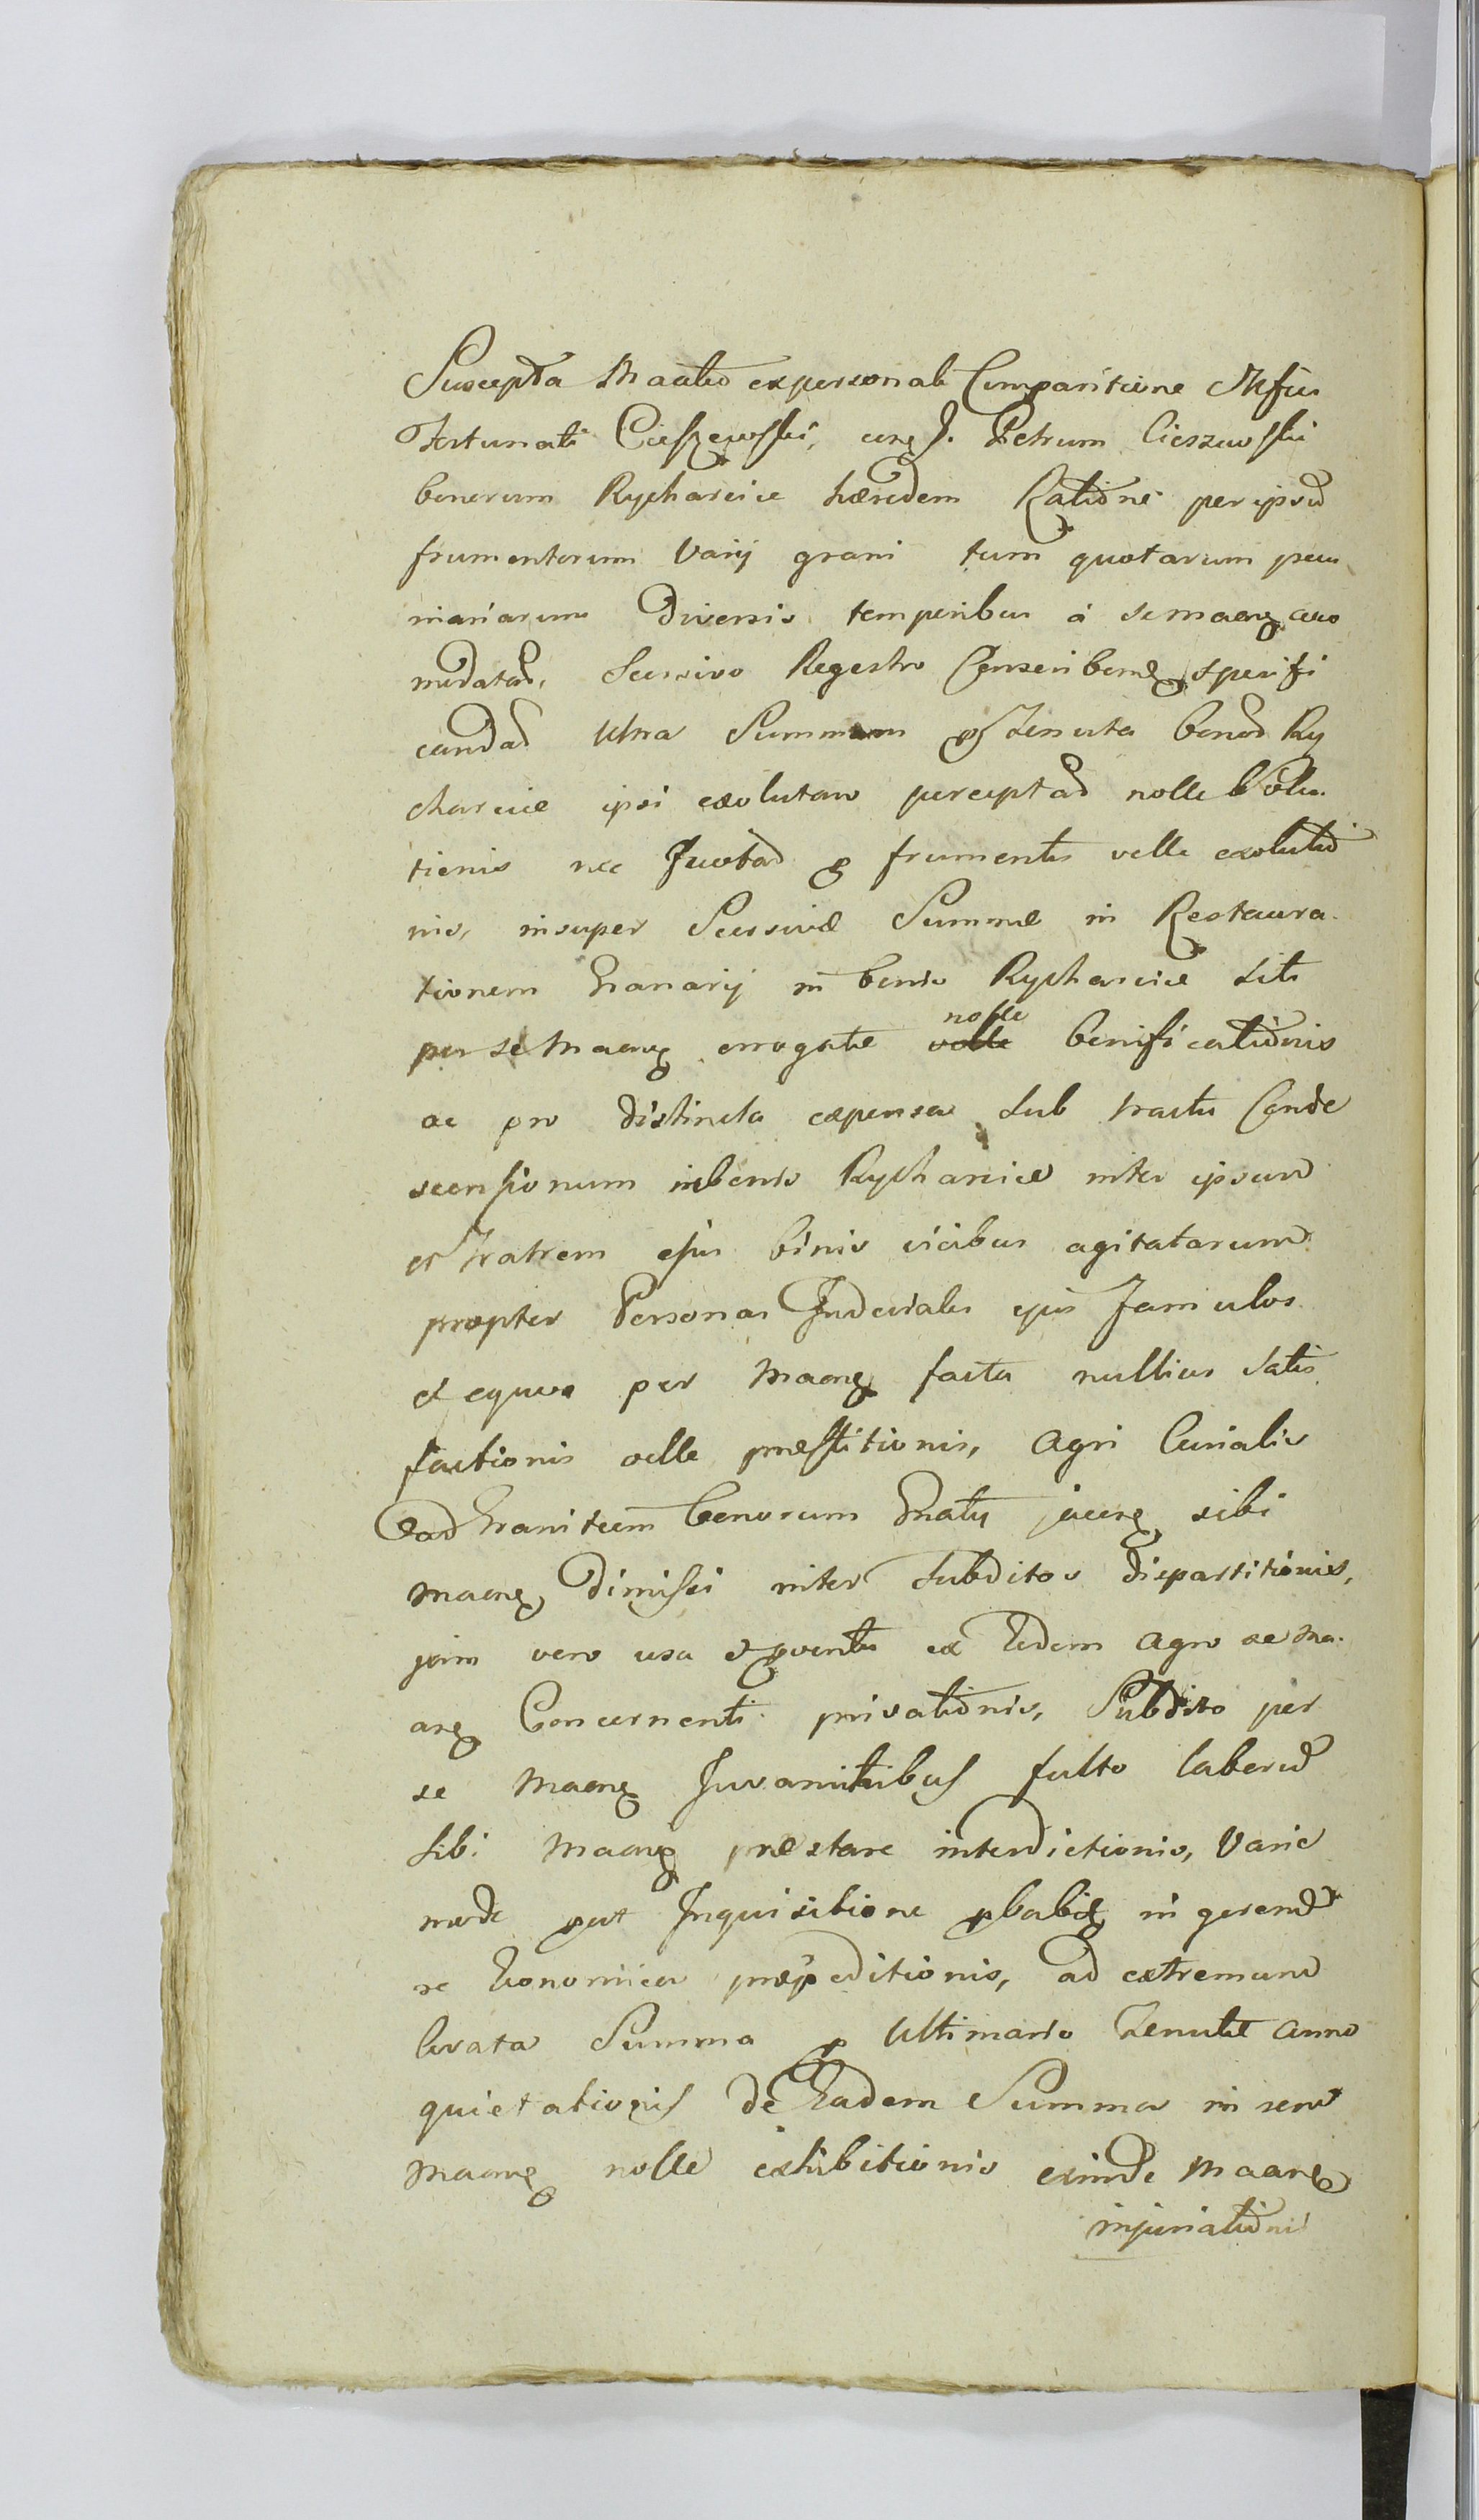 Suscepta Maatio ex personali Comparitione Mfici
Fortunati Cieszewski, cng J. Petrum Cieszewski
bonorum Rycharcice hæredem Ratione per ipsum
frumentorum Varij grani tum quotarum pecu
niariarum Diversis temporibus á se maang aco
modatar, Seorsivo Regestro Conscribend specifi
candar Ultra Summam p Tenuta bonor Ry
charcice ipsi exolutam perceptar nolle Solu
tionis nec Juxtad p frumentis velle exolutio
nis, insuper Seorsivæ Summæ in Restaura
tionem Granarij in bonis Rycharcice siti
per se Maang errogatæ nolle benificationis
ac pro distincta expensa sub tractu Conde
scensionum in bonis Rycharcice inter ipsum
et Fratrem ejus binis vicibus agitatarum
propter Personas Judiciales ejus Famulos
et equos per Maang facta nullius Satis
factionis velle præstitionis, Agri Curialis
ad Graniciem bonorum jacens sibi
maang Dimissi inter Subditos dispartitionis,
jam vero usu et pventu ex Eodem Agro se Ma
ang Concernenti privationis, Subdito per
se Maang Juvaminibus fulto laborem
sibi Maang præstare interdictionis, Varie
mode put Inquisitione pbabit in gerend
re Economica præpeditionis, ad extremum
levata Summa p Ultimario Tenutæ anno
quietationis de Eadem Summa in rem
Maang nolle exhibitionis exinde Maang
injuriationis